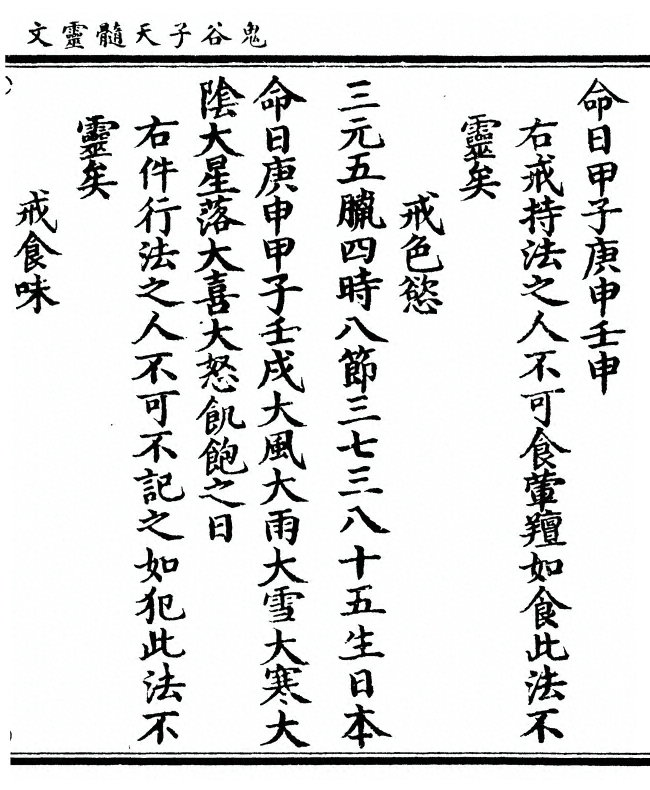 鬼谷子天髓靈文
命日甲子庚申壬申
右戒持法之人不可食葷羶如食此法不
靈矣
戒色慾
三元五臘四時八節三七三八十五生日本
命日庚申甲子壬戌大風大雨大雪大寒大
陰大星落大喜大怒飢飽之日
右件行法之人不可不記之如犯此法不
靈矣
戒食味